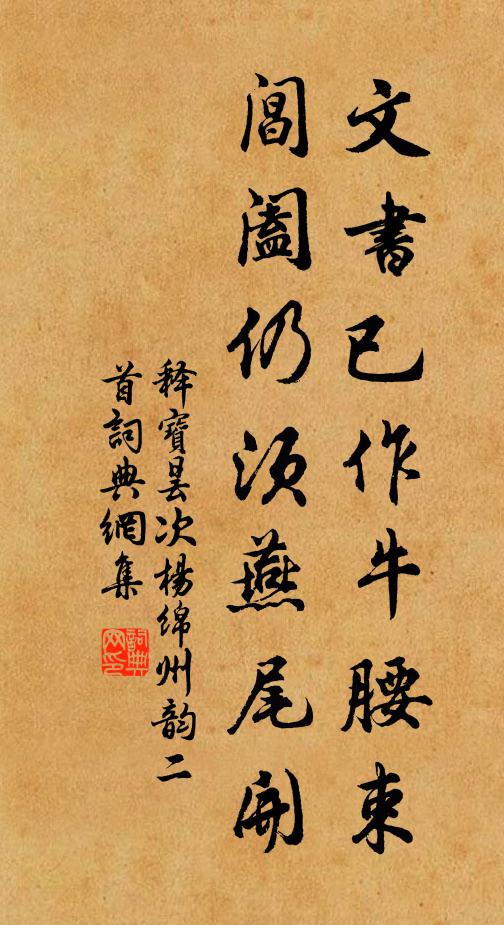 文書已作牛腰束
閶闔仍須燕尾開
釋寶曇次楊綿州韵二
首詞典網集
詞典
网印